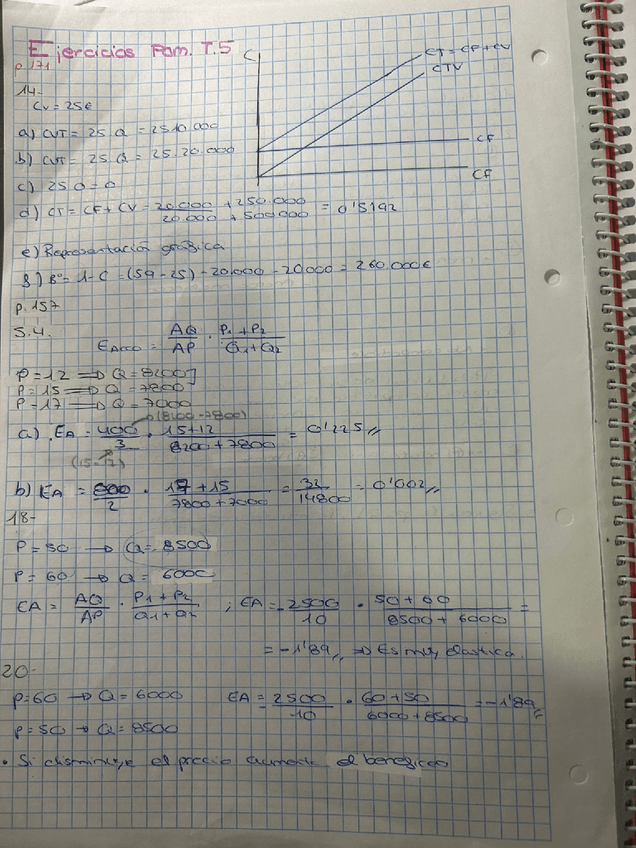 Ejercicios Pam. T.5
p.171
14-
CV = 25€
a) CVT = 25.Q = 25 10.000
b) CVT = 25.Q = 25.20.000
c) 25.0 = 0
d) CT = CF + CV = 20.000 + 250.000 = 0'5192
20.000 + 500.000
C
CT = CF + CV
CTV
CF
CF
e) Representación gráfica
f) Bº = 1 - C = (59 - 25) - 20.000 - 20.000 = 260.000€
p. 157
5.4.
EARCO = ΔQ/ΔP · P1 + P2/Q1 + Q2
P = 12 ⇒ Q = 8200
P = 15 ⇒ Q = 7800
P = 17 ⇒ Q = 7000
(8200 - 7800)
a) EA = 400/3 · 15+12/8200 + 7800 = 0'225 //
(15-12)
b) EA = 800/2 · 17 + 15/7800 + 7000 = 32/14800 = 0'002 //
18-
P = 50 → Q = 8500
P = 60 → Q = 6000
EA = ΔQ/ΔP · P1 + P2/Q1 + Q2 ; EA = -2500/10 · 50 + 60/8500 + 6000 =
= -1'89 // ⇒ Es muy elastica.
20-
P=60 → Q = 6000 EA = 2500/-10 · 60 + 50/6000 + 8500 = -1'89 //
P = 50 → Q = 8500
• Si disminuye el precio aumenta el beneficio